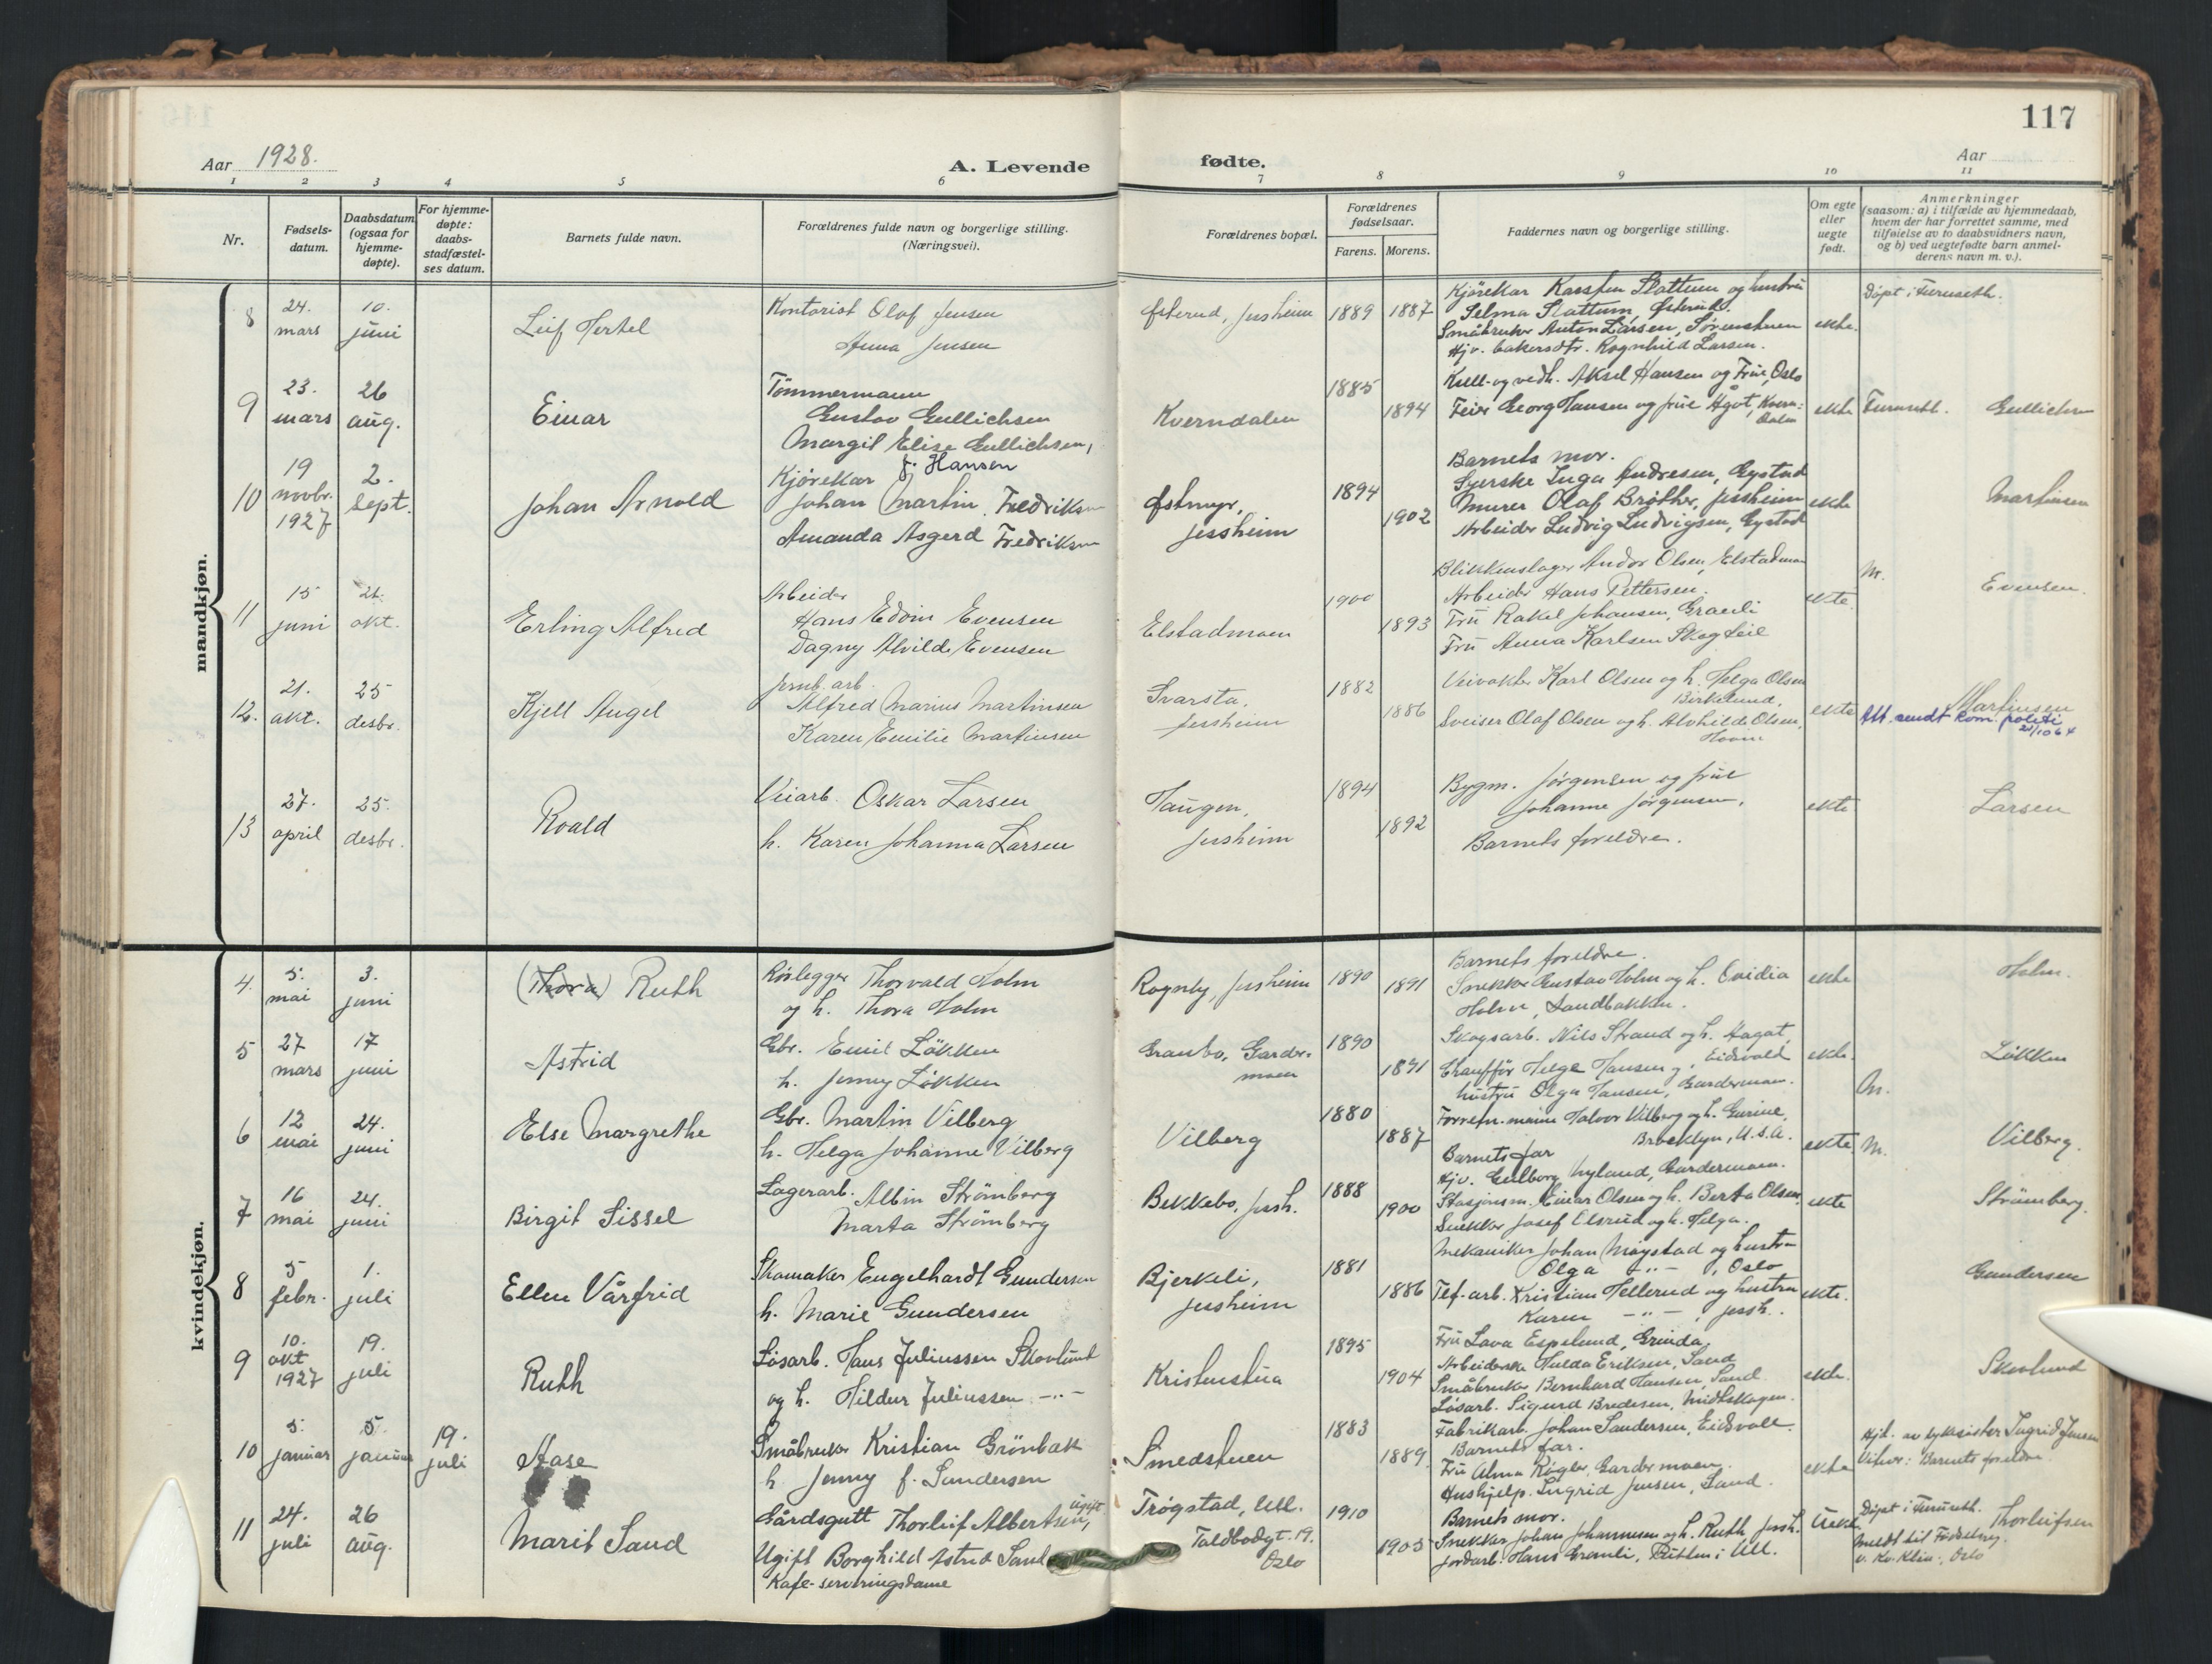 117
Aar 1928.
A. Levende
fødte.
Aar
1 2 3 4 5 6 7 8 9 10 11
Nr.
Fødsels-
datum.
Daabsdatum
(ogsaa for
hjemme-
døpte).
For hjemme-
døpte:
daabs-
stadfæstel-
ses datum.
Barnets fulde navn.
Forældrenes fulde navn og borgerlige stilling.
(Næringsvei).
Forældrenes bopæl.
Forældrenes
fødselsaar.
Farens. Morens.
Faddernes navn og borgerlige stilling.
Om egte
eller
uegte
født.
Anmerkninger
(saasom: a) i tilfælde av hjemmedaab,
hvem der har forrettet samme, med
tilføielse av to daabsvidners navn,
og b) ved uegtefødte barn anmel-
derens navn m. v.).
mandkjøn.
8
24.
mars
10.
juni
Leif Hertel
Kontorist Olaf Jensen
Anna Jensen
Østerud, Jessheim
1889 1887
Kjørekar Karsten Slattum og hustru
Selma Slattum, Østerud.
Småbruker Anton Larsen, Sørenstuen
Hjv. bakersdtr. Ragnhild Larsen.
ekte.
Døpt i Furuseth.
9
23.
mars
26
aug.
Einar
Tømmermann
Gustav Gullichsen
Margit Elise Gullichsen,
f. Hansen
Kverndalen
1885
1894
Kull- og vedh. Aksel Hansen og Frue, Oslo
Feier Georg Hansen og frue Ågot, Kvern-
dalen
ekte
Furuseth. Gullichsen
10
19
novbr.
1927
2.
sept.
Johan Arnold
Kjørekar
Johan Martin Fredriksen
Amanda Asgerd Fredriksen
Østmyr,
Jessheim
1894
1902
Barnets mor.
Syerske Inga Andresen, Gystad
Murer Olaf Bråther, Jessheim
Arbeider Ludvig Ludvigsen, Gystad
ekte
Martinsen
11
15
juni
21.
okt.
Erling Alfred
Arbeider
Hans Edvin Evensen
Dagny Alvilde Evensen
Elstadmoen
1900
1893
Blikkenslager Andor Olsen, Elstadmoen
Arbeider Hans Pettersen.
Fru Rakel Johansen, Granli
Fru Anna Karlsen Skogheil
ekte
M.
Evensen.
12.
21.
okt.
25
desbr.
Kjell Augel
Jernb. arb.
Alfred Marius Martinsen
Karen Emilie Martinsen
Svarsta,
Jessheim
1882
1886
Veivokter Karl Olsen og h. Helga Olsen
Birkelund,
Sveiser Olaf Olsen og h. Alvhilde Olsen,
Hovin
ekte
Martinsen
Att. sendt Rom. politi
21/10 64
13
27.
april
25.
desbr.
Roald
Veiarb. Oskar Larsen
h. Karen Johanna Larsen
Haugen,
Jessheim
1894
1892
Bygm. Jørgensen og frue
Johanne Jørgensen.
Barnets foreldre.
ekte
Larsen
kvindekjøn.
4.
5.
mai
3.
juni
(Thora) Ruth
Rørlegger Thorvald Holm
og h. Thora Holm
Rognby, Jessheim
1890 1891
Barnets foreldre.
Snekker Gustav Holm og h. Ovidia
Holm, Sandbakken.
ekte
Holm.
5
27
mars
17
juni
Astrid
Gbr. Emil Løkken
h. Jenny Løkken
Granbo, Garder-
moen
1890
1891
Skogsarb. Nils Strand og h. Aagot,
Eidsvold
Chauffør Helge Hansen og
hustru Olga Hansen, Gardermoen.
ekte.
M.
Løkken
6
12
mai
24.
juni
Else Margrethe
Gbr. Martin Vilberg
h. Helga Johanne Vilberg
Vilberg
1880
1887
Forretn. mann Halvor Vilberg og h. Gurine,
Brooklyn, U.S.A.
Barnets far
Hjv. Gulborg Nyland, Gardermoen.
ekte
M.
Vilberg.
7
16
mai
24.
juni
Birgit Sissel
Lagerarb. Albin Strömberg
Marta Strömberg
Bekkebo, Jessh.
1888
1900
Stasjonsm. Einar Olsen og h. Berta Olsen.
Snekker Josef Elsrud og h. Helga.
ekte
Strömberg.
8
5
febr.
1.
juli
Ellen Vårfrid
Skomaker Engelhardt Gundersen
h. Marie Gundersen
Bjerkeli,
Jessheim
1881
1886
Mekaniker Johan Møystad og hustru
Olga -"- , Oslo
Tlf.-arb. Kristian Hellerud og hustru
Karen -"- , Jessh.
ekte.
Gundersen
9
10.
okt
1927
19.
juli
Ruth
Løsarb. Hans Juliussen Skovlund
og h. Hildur Juliussen -"-
Kristenstua
1895
1904
Fru Lava Espelund, Grinda.
Arbeiderske Hulda Eriksen, Sand
Småbruker Bernhard Hansen, Sand.
Løsarb. Sigurd Bredesen, Midtskogen.
ekte.
Skovlund
10
5.
januar
5.
januar
19.
juli
Aase
Småbruker Kristian Grönbak
h. Jenny f. Sandersen
Smedstuen
1883
1889
Fabrikarb. Johan Sandersen, Eidsvoll.
Barnets far.
Fru Alma Røgler, Gardermoen.
Hushjelp. Ingrid Jensen, Sand.
ekte
Hjd. av sykesøster Ingrid Jensen
Vitner: Barnets foreldre
11
24.
juli
26
aug.
Marit Sand
Gårdsgutt Thorleif Albertsen, ugift
Ugift Borghild Astrid Sand
Kafe-serveringsdame
Trøgstad, Ull.
Toldbodgt. 19.
Oslo
1910
1905
Barnets mor.
Snekker Johan Johannesen og h. Ruth, Jessh.
Jordarb. Hans Gramli, Rutten i Ull.
Uekte.
Døpt i Furuseth. Thorleifsen
Meldt til Fødselreg.
v. Kv. Klin., Oslo